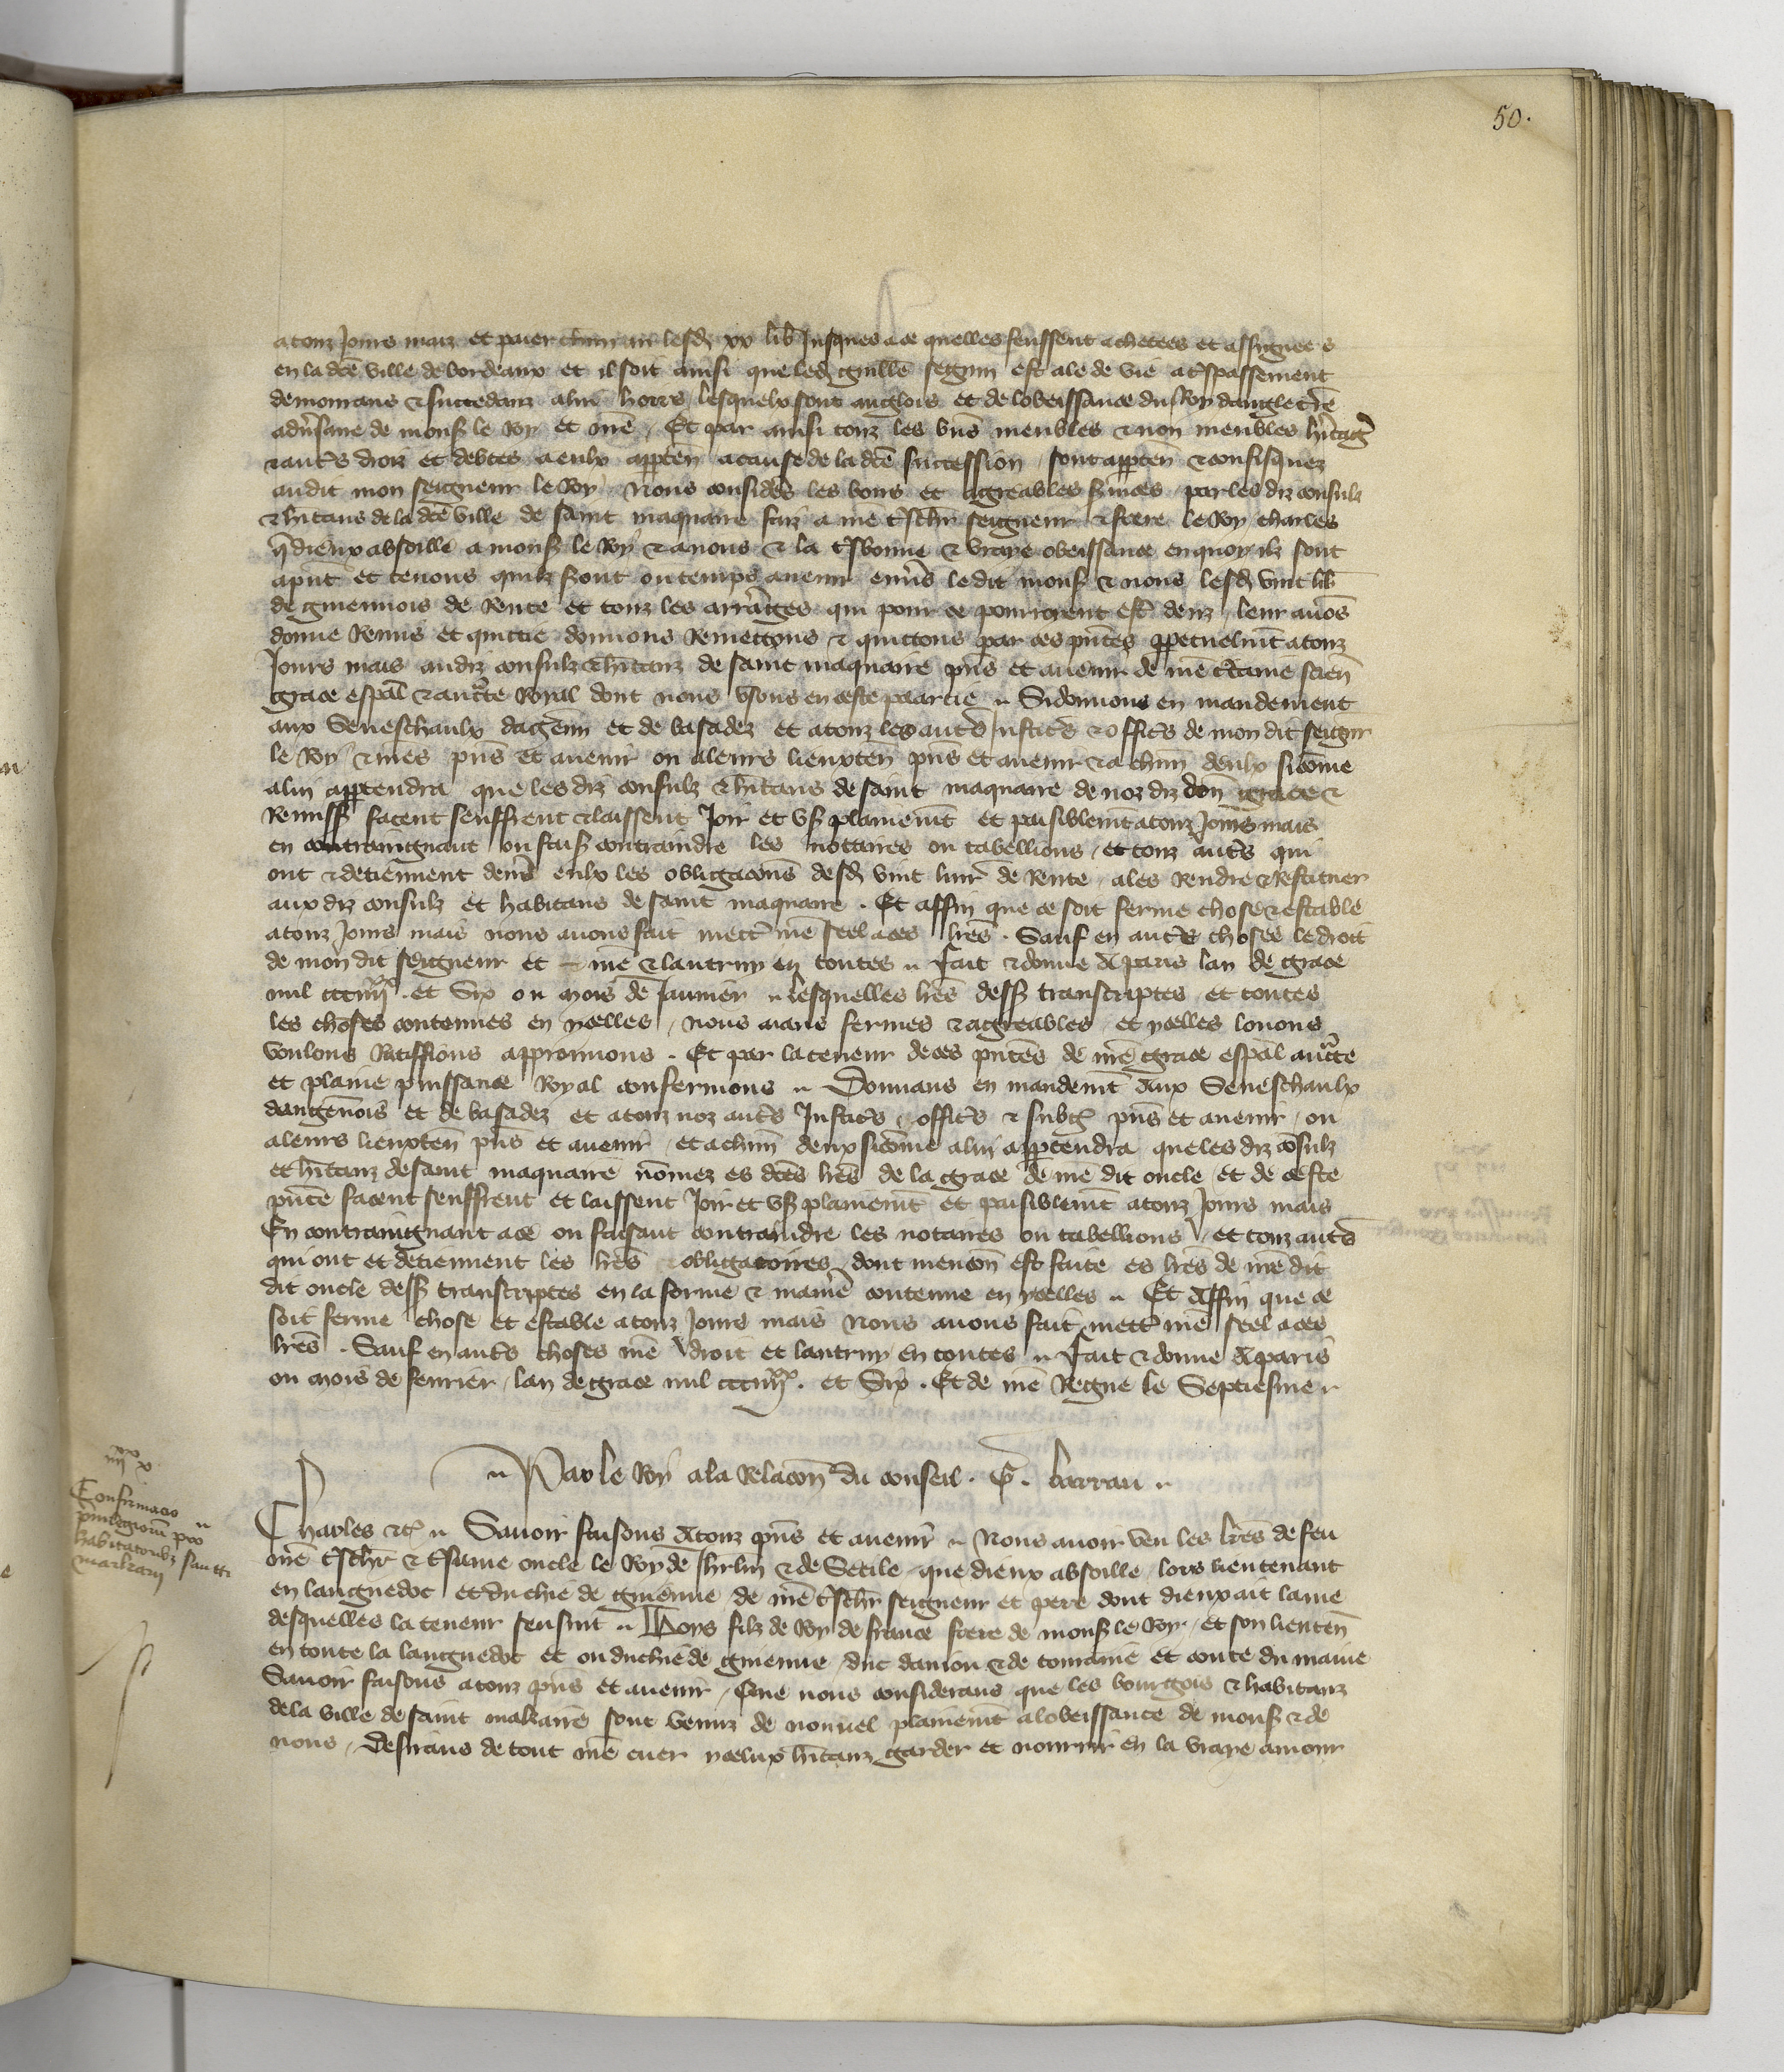 50.
a touz jours mais et paier chūn an lesd xx lib jusques a ce quelles feussent achetees et assignees
en la dcē ville de bordeaux et il soit ainsi que led guillē seguin est ale de vie a t̄spassement
demorans & succedanz a lui horrs lesquelx sont anglois et de lobeissance du Roy dangleterē
adūsaire de monsʳ le Roy et nrē / Et par ainsi touz les biēs meubles & non meubles hītagʳ
& autʳs droiz et debtes a eulx apptēn a cause de la dcē succession sont apptēn & confisquez
audit mon seigneur le Roy Nous considēs les bons et agreables s̄vices par les diz consulz
& hītans de la dcē ville de saint maquaire faiz a nrē t̄schr̄ seigneur & frere le Roy charles
q̄ dieux absoille a monsʳ le Roy & a nous & la t̄sbonne & vraye obeissance en quoy ilz sont
a pn̄t et tenons quilz s̄ont ou temps avenir envs̄ ledit monsʳ & nous lesd vint lib̄
de guiennois de Rente et touz les arrēages qui pour ce pourroient estʳ deuz leur avōs
donne Remis et quictie donnons Remettons & quictons par ces pn̄tes ppetuelmt̄ a touz
Jours mais audiz consulz & hītanz de saint maquaire pn̄s et avenir de nrē c̄taine scien̄
grace esp̄al & auctʳte Royal dont nous usons en ceste paartie .. Si donnons en mandement
aux Seneschaulx dagen̄ et de basadez et a touz les autʳs justicʳs & officʳs de mon dit seignr
le Roy & nrēs pn̄s et avenir ou a leurs lieuxten̄ pn̄s et avenir & a chūn deulx sicōme
a lui apptendra que les diz consulz & hītans de saint maquaire de noz diz don̄ grace &
Remissʳ facent seuffrent & laissent Joir et usʳ plainemt̄ et paisiblemt̄ a touz Jours mais
en contraingnant ou faisʳ contraindre les nottaires ou tabellions / et touz autʳs qui
ont & detiennent deuēs eulx les obligacōns desd vint livrʳ de Rente a les Rendre & Restituer
aux diz consulz et habitans de saint maquaire . Et affin que ce soit ferme chose & estable
a touz Jours mais nous avons fait mettʳ nrē seel a ces lrēs . Sauf en autʳs choses le droit
de mon dit seigneur et nrē & lautruy en toutes .. fait & donne A paris lan de grace
mil ccc iiijˣˣ . et Six ou mois de Janvier .. lesquelles lrēs dessʳ transcriptes et toutes
les choses contenues en ycelles / nous aians fermes & agreables et ycelles louons
voulons Ratiffions approuvons . Et par la teneur de ces pn̄tes de nrē grace esp̄al auctʳte
et plaine puissance Royal confermons .. Donnans en mandemt̄ Aux Seneschaulx
dangenois et de basadez et a touz noz autʳs Justicʳs officʳs & subgʳ pn̄s et avenir / ou
a leurs lieuxten̄ pn̄s et avenir / et a chūn deux sicōme a lui apptendra que les diz cōsulz
et hītanz de saint maquaire nōmez es dcēs lrēs de la grace de nrē dit oncle et de ceste
pn̄te facent seuffrent et laissent Joir et usʳ plainemt̄ et paisiblemt̄ a touz Jours mais
En contraingnant a ce ou faisant contraindre les notaires ou tabellions / et touz autʳs
qui ont et detiennent les lrēs obligatoires dont mencōn est faite es lrēs de nrē dit
dit oncle dessʳ transcriptes en la forme & manʳe contenue en ycelles .. Et Affin que ce
soit ferme chose et estable a touz Jours mais Nous avons fait mettʳ nrē seel a ces
lrēs . Sauf en autʳs choses nrē droit et lautruy en toutes .. fait & donne A paris
ou mois de fevrier / lan de grace mil ccc iiijˣˣ . et Six . Et de nrē Regne le Septiesme ..
.. Par le Roy a la Relacōn du conseil . G . barrau ..
Confirmacio
privilegiorū pro
habitatoribȝ sancti
markarij
Charles &cʳ .. Savoir faisons A touz pn̄s et avenir .. Nous avoir veu les lrēs de feu
nrē t̄schr̄ & t̄same oncle le Roy de Jhrlm̄ & de Secile que dieux absoille lors lieutenant
en languedoc et duchie de guienne de nrē t̄schr̄ seigneur et pere dont dieux ait lame
desquelles la teneur sensuit .. Loys filz de Roy de france frere de monsʳ le Roy / et son lieuten̄
en toute la languedoc et ou duchie de guienne / duc danjou & de touraine et conte du maine
Savoir faisons a touz pn̄s et avenir / Que nous considerans que les bourgois & habitanz
de la ville de saint makaire sont venuz de nouvel plainemt̄ a lobeissance de monsʳ & de
nous / desirans de tout nrē cuer yceulx hītanz garder et nourrir en la vraye amour